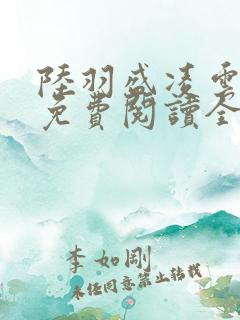 陸羽盛凌雲
免費閱讀全
李如剛
未经同意禁止转载